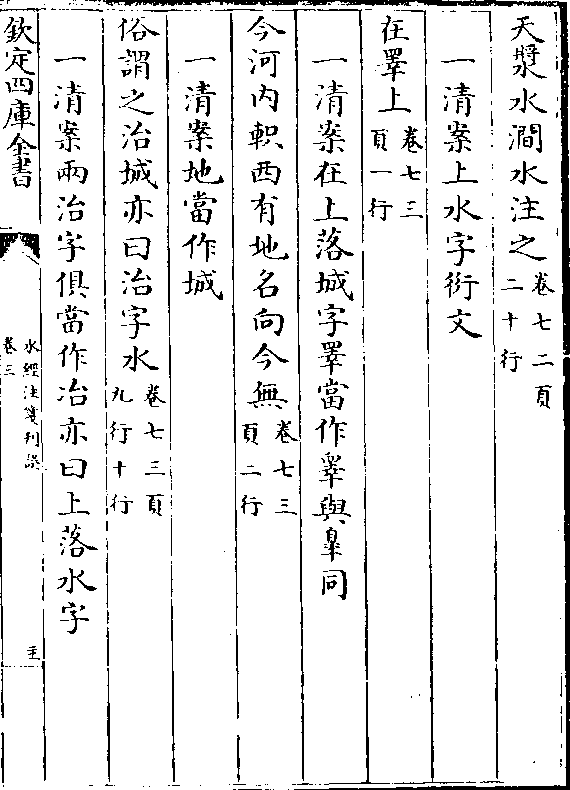 天漿水澗水注之卷七二頁二十行
一清案上水字衍文
在睪上卷七三頁一行
一清案在上落城字睪當作睾與皐同
今河內軹西有地名向今無卷七三頁二行
一清案地當作城
俗謂之治城亦曰治字水卷七三頁九行十行
一清案兩治字俱當作冶亦曰上落水字
欽定四庫全書
水經注箋刊誤
卷三